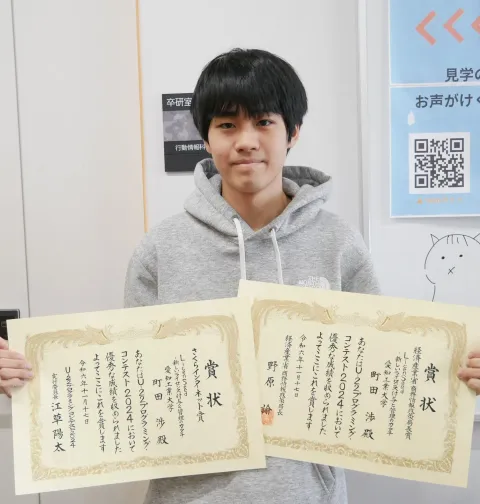 卒研室
行動情報科
く く く
見学の
お声がけく
THE
NORTH
賞状
さくらインターネット賞
愛知工業大学
町田 渉 殿
あなたはU22プログラミング
コンテスト2024において
優秀な成績を収められました
よってここにこれを賞します
令和六年十一月十七日
U22プログラミングコンテスト2024
実行委員長 江草陽太
賞状
経済産業省 商務情報政策局長賞
愛知工業大学
町田 渉 殿
あなたはU22プログラミング
コンテスト2024において
優秀な成績を収められました
よってここにこれを賞します
令和六年十一月十七日
経済産業省 商務情報政策局長
野原 諭